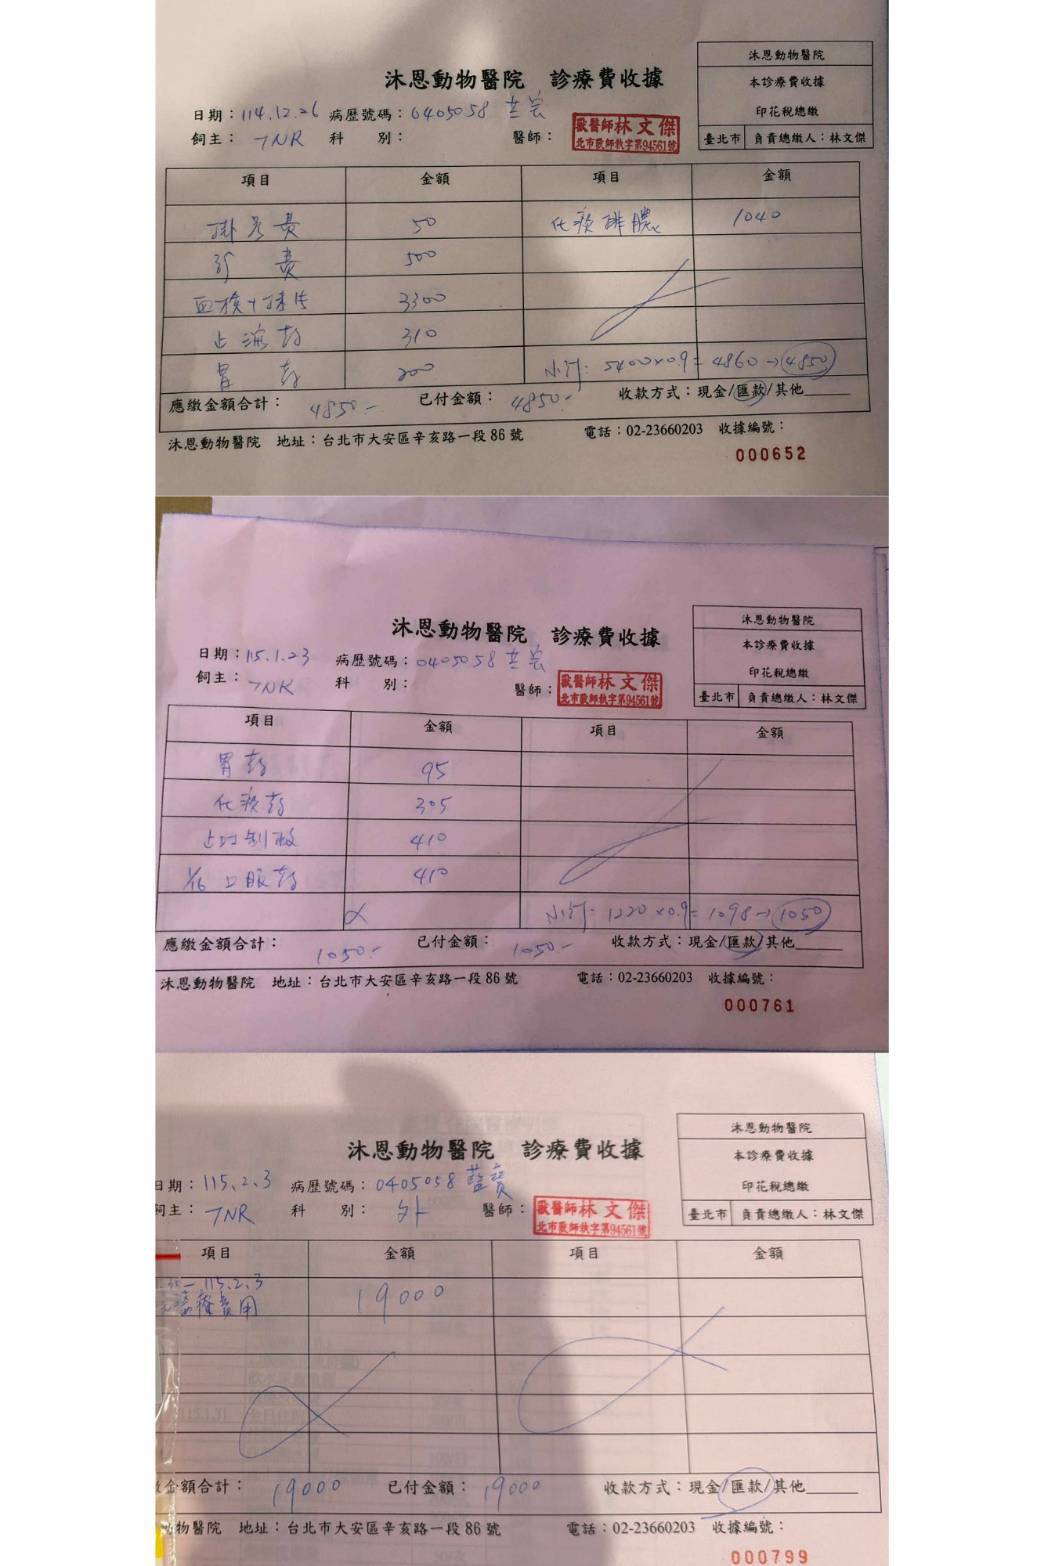 沐恩動物醫院 診療費收據
沐恩動物醫院
本診療費收據
印花稅總繳
臺北市 負責總繳人：林文傑
日期：114.12.26 病歷號碼：0405058
飼主：TNR 科 別： 醫師： 獸醫師林文傑
北市獸師執字第94561號
項目 金額 項目 金額
掛號費 50 化痰排膿 1040
診 費 500
血檢+X片 3300
310
胃 葯 200 小計：5400×0.9=4860→4850
應繳金額合計：4850- 已付金額：4850- 收款方式：現金/匯款/其他
沐恩動物醫院 地址：台北市大安區辛亥路一段86號 電話：02-23660203 收據編號：
000652
沐恩動物醫院 診療費收據
沐恩動物醫院
本診療費收據
印花稅總繳
臺北市 負責總繳人：林文傑
日期：115.1.23 病歷號碼：0405058
飼主：TNR 科 別： 醫師： 獸醫師林文傑
北市獸師執字第94561號
項目 金額 項目 金額
胃葯 95
化痰葯 305
410
1/16 口服葯 410
小計：1220×0.9=1098→1050
應繳金額合計：1050- 已付金額：1050- 收款方式：現金/匯款/其他
沐恩動物醫院 地址：台北市大安區辛亥路一段86號 電話：02-23660203 收據編號：
000761
沐恩動物醫院 診療費收據
沐恩動物醫院
本診療費收據
印花稅總繳
臺北市 負責總繳人：林文傑
日期：115.2.3 病歷號碼：0405058 藍寶
飼主：TNR 科 別：外 醫師： 獸醫師林文傑
北市獸師執字第94561號
項目 金額 項目 金額
115.2.3
醫療費用 19000
金額合計：19000 已付金額：19000 收款方式：現金/匯款/其他
物醫院 地址：台北市大安區辛亥路一段86號 電話：02-23660203 收據編號：
000799